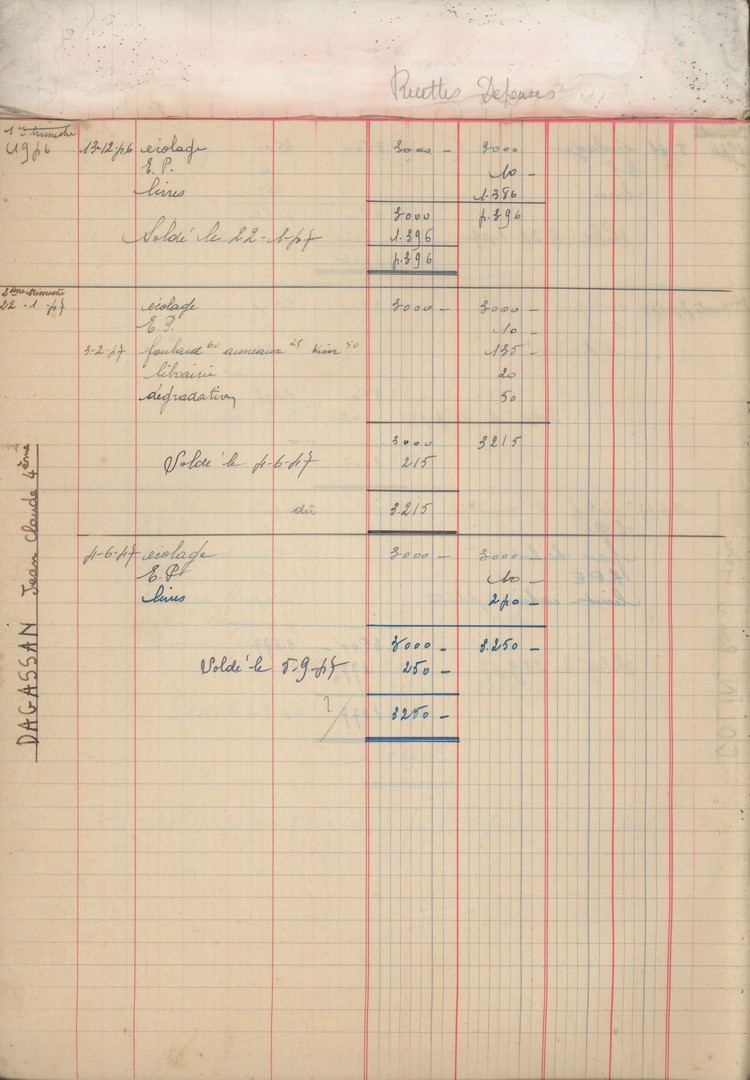 Recettes Dépenses
1er trimestre
1946 13-12-46 écolage 3000 - 3000
E.P. 10 -
livres 1.386
3000 4.396
Soldé le 22-1-47 1.396
4.396
2ème trimestre
22-1-47 écolage 3000 - 3000 -
E.P. 10 -
3-2-47 foulard 60 anneaux 25 50 135 -
librairie 20
dégradation 50
3000 3215
Soldé le 4-6-47 215
dû 3.215
4-6-47 écolage 3000 - 3000 -
E.P 10 -
livres 240 -
3000 - 3.250 -
Soldé le 5-9-47 250 -
3250 -
DAGASSAN Jean Claude 4ème